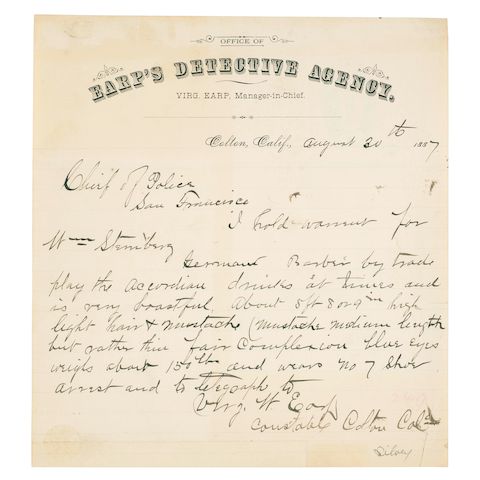 OFFICE OF
EARP'S DETECTIVE AGENCY.
VIRG. EARP, Manager-in-Chief.
Colton, Calif., August 30th 1887
Chief of Police
San Francisco
I hold warrant for
Wm Sternberg
German Barber by trade
play the accordian drinks at times and
is very boastful. About 5 ft 8 or 9 in high
light hair & mustache (mustache medium length
but rather thin fair complexion blue eyes
weighs about 150 lbs and wears No 7 shoe
arrest and to telegraph to
Virg. W Earp
Constable Colton Cal